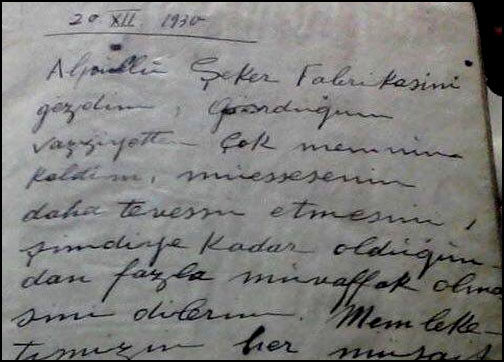 20 XII. 1930
Alpullu Şeker Fabrikasini
gezdim, Gördüğüm
vaziyetten çok memnun
kaldım, müessesenin
daha tevessü etmesini,
şimdiye kadar olduğun
dan fazla muvaffak olma
sını dilerim. Memleke
timizin her müsait